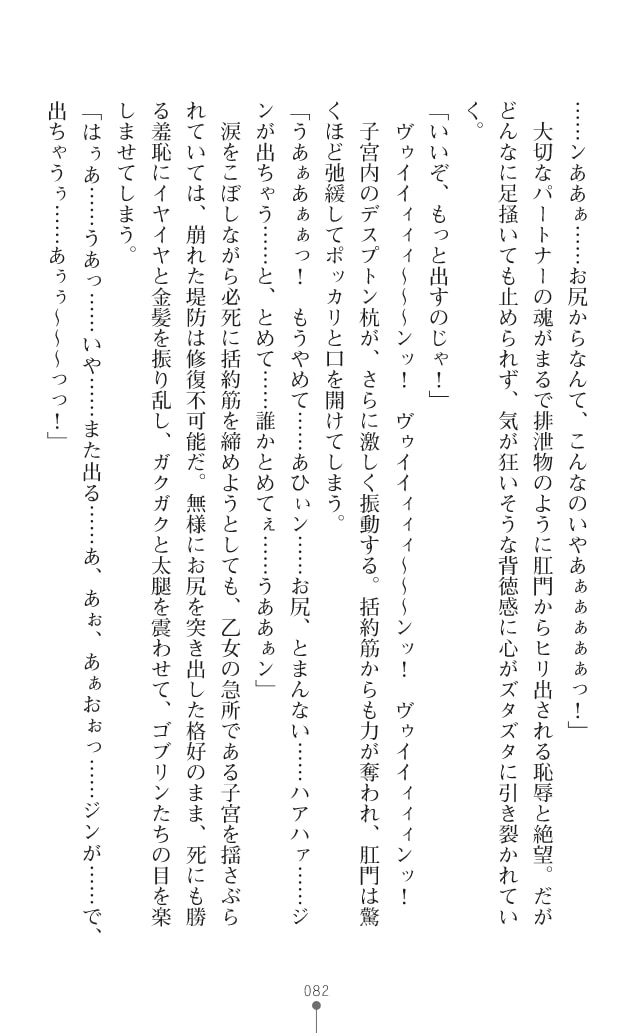 ……ンああぁ……お尻からなんて、こんなのいやあぁぁぁぁぁっ！」
　大切なパートナーの魂がまるで排泄物のように肛門からヒリ出される恥辱と絶望。だが
どんなに足掻いても止められず、気が狂いそうな背徳感に心がズタズタに引き裂かれてい
く。
「いいぞ、もっと出すのじゃ！」
　ヴゥイイィィィ～～～ンッ！　ヴゥイイィィィ～～～ンッ！　ヴゥイイィィィンッ！
　子宮内のデスプトン杭が、さらに激しく振動する。括約筋からも力が奪われ、肛門は驚
くほど弛緩してポッカリと口を開けてしまう。
「うあぁあぁぁっ！　もうやめて……あひぃン……お尻、とまんない……ハアハァ……ジ
ンが出ちゃう……と、とめて……誰かとめてぇ……うああぁン」
　涙をこぼしながら必死に括約筋を締めようとしても、乙女の急所である子宮を揺さぶら
れていては、崩れた堤防は修復不可能だ。無様にお尻を突き出した格好のまま、死にも勝
る羞恥にイヤイヤと金髪を振り乱し、ガクガクと太腿を震わせて、ゴブリンたちの目を楽
しませてしまう。
「はぅあ……うあっ……いや……また出る……あ、あぉ、あぁおぉっ……ジンが……で、
出ちゃうぅ……あぅぅ～～～っっ！」
082